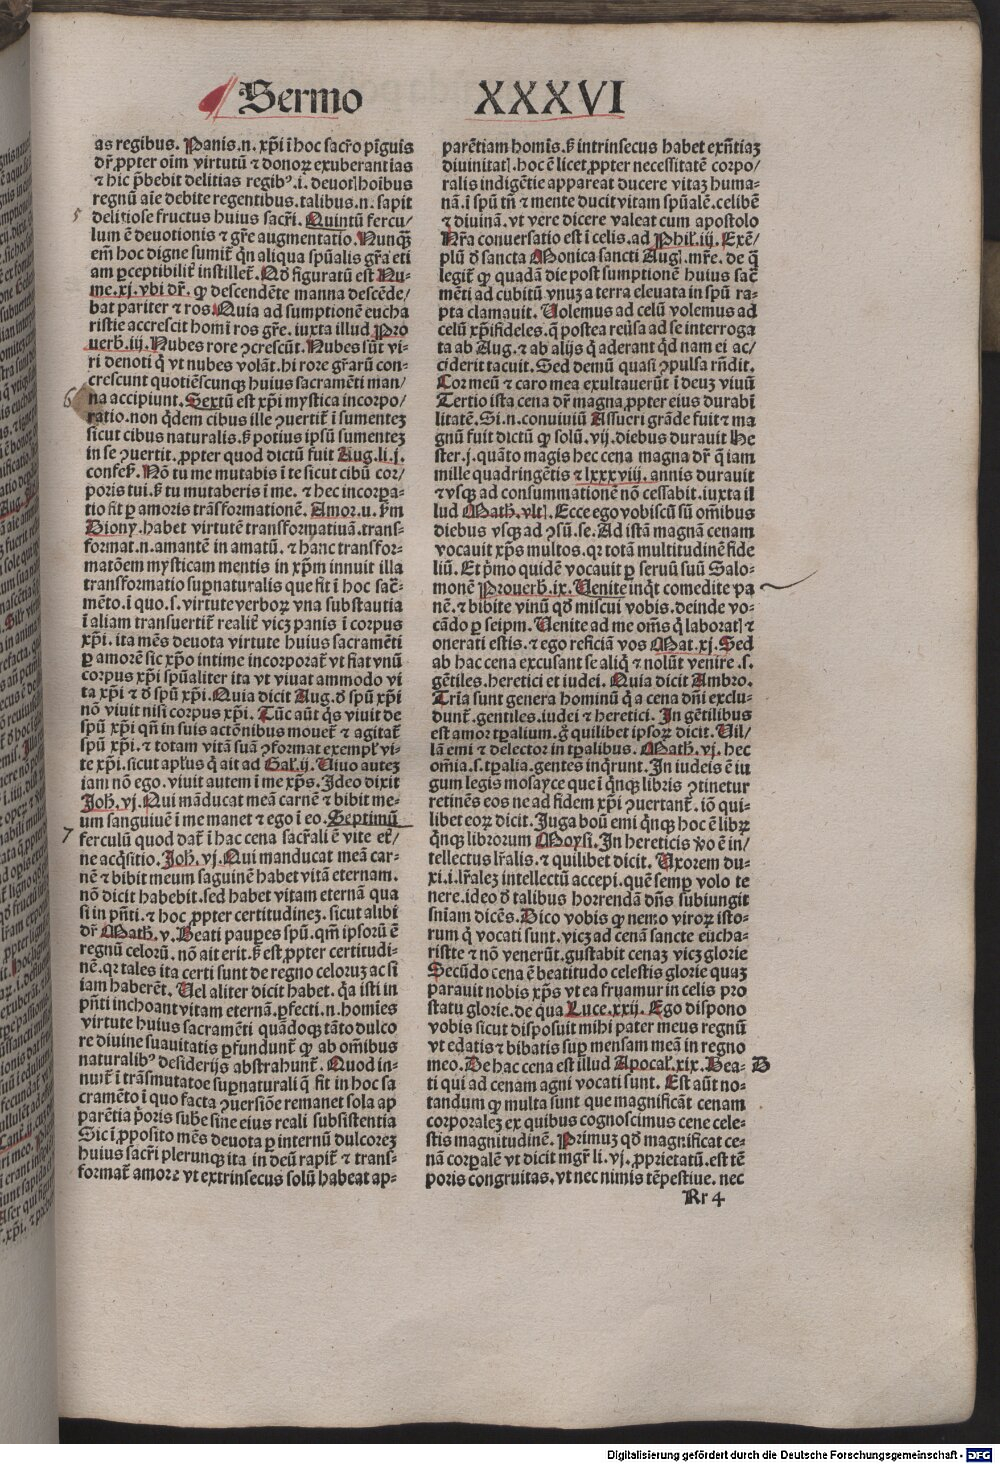 Sermo XXXVI
as regibus. Panis.n. xp̄i ī hoc sacr̄o pīguis
dr̄.ꝓpter oīm virtutū ⁊ donoꝝ exuberantias
⁊ hic p̄bebit delitias regibꝰ.i. deuotꝭ hoībus
regnū aīe debite regentibus.talibus.n. sapit
delitiose fructus huius sacr̄i. Quintū fercu/
lum ē deuotionis ⁊ gr̄e augmentatio. Nunqͣꝫ
em̄ hoc digne sumit᷑ qn̄ aliqua spūalis gr̄a eti
am ꝑceptibilit᷑ instillet᷑. Qd̄ figuratū est Nu-
me.xj. vbi dr̄. ꝙ descendēte manna descēde/
bat pariter ⁊ ros. Quia ad sumptionē eucha
ristie accrescit homī ros gr̄e. iuxta illud Pro
uerb̄.iij. Nubes rore ꝯcrescūt. Nubes sūt vi-
ri deuoti q̄ vt nubes volāt. hi rore gr̄arū con-
crescunt quotiēscunqꝫ huius sacramēti man/
na accipiunt. Sextū est xp̄i mystica incorpo/
ratio.non qͥdem cibus ille ꝯuertit᷑ ī sumentez
sicut cibus naturalis.sꝫ potius ipsū sumentez
in se ꝯuertit. ꝓpter quod dictū fuit Aug.li.j.
confess̄. Nō tu me mutabis ī te sicut cibū cor/
poris tui.sꝫ tu mutaberis ī me. ⁊ hec incorꝑa-
tio fit ꝑ amoris trāsformationē. Amor.n. ẜm
Diony. habet virtutē transformatiuā.trans-
format.n. amantē in amatū. ⁊ hanc transfor-
matōem mysticam mentis in xp̄m innuit illa
transformatio suꝑnaturalis que fit ī hoc sac̄-
mēto.ī quo.s. virtute verboꝝ vna substautia
ī aliam transuertit᷑ realit᷑ vicꝫ panis ī corpus
xp̄i. ita mēs deuota virtute huius sacramēti
ꝑ amorē sic xp̄o intime incorporat᷑ vt fiat vnū
corpus xp̄i spūaliter ita vt viuat ammodo vi
ta xp̄i ⁊ d̄ spū xp̄i. Quia dicit Aug. d̄ spū xp̄i
nō viuit nisi corpus xp̄i. Tūc aūt qͥs viuit de
spū xp̄i qn̄ in suis actōnibus mouet᷑ ⁊ agitat᷑
spū xp̄i. ⁊ totam vitā suā ꝯformat exempl̓ vi-
te xp̄i. sicut apl̓us qͥ ait ad Gal̓.ij. Viuo autez
iam nō ego. viuit autem ī me xp̄s. Ideo dixit
Joh̄.vj. Qui māducat meā carnē ⁊ bibit me-
um sanguiuē ī me manet ⁊ ego ī eo. Septimū
ferculū quod dat᷑ ī hac cena sacr̄ali ē vite et᷑/
ne acqͥsitio. Joh̄.vj. Qui manducat meā car-
nē ⁊ bibit meum saguinē habet vitā eternam.
nō dicit habebit.sed habet vitam eternā qua
si in pn̄ti. ⁊ hoc ꝓpter certitudinez. sicut alibi
dr̄ Math̄.v. Beati pauꝑes spū. qm̄ ipsorū ē
regnū celorū. nō ait erit.sꝫ est.ꝓpter certitudi-
nē.qr tales ita certi sunt de regno celoruꝫ ac si
iam haberēt. Uel aliter dicit habet. qͥa isti in
pn̄ti inchoant vitam eternā.ꝑfecti.n. homīes
virtute huius sacramēti quādoqꝫ tāto dulco
re diuine suauitatis ꝑfundunt᷑ ꝙ ab om̄ibus
naturalibꝰ desiderijs abstrahunt᷑. Quod in-
nuit᷑ ī trāsmutatoe suꝑnaturali q̄ fit in hoc sa
cramēto ī quo facta ꝯuersiōe remanet sola ap
parētia p̄oris sub̄e sine eius reali subsistentia
Sic ī ꝓposito mēs deuota ꝑ internū dulcorez
huius sacr̄i plerunqꝫ ita in deū rapit᷑ ⁊ trans-
format᷑ amore vt extrinsecus solū habeat ap-
parētiam homīs.sꝫ intrinsecus habet exn̄tiaꝫ
diuinitatꝭ.hoc ē licet ꝓpter necessitatē corpo/
ralis indigētie appareat ducere vitaꝫ huma-
nā.ī spū tn̄ ⁊ mente ducit vitam spūalē.celibē
⁊ diuinā. vt vere dicere valeat cum apostolo
Nr̄a conuersatio est ī celis.ad Phil̓.iij. Exē/
plū d̄ sancta Monica sancti Augꝭ.mr̄e. de q̄
legit᷑ ꝙ quadā die post sumptionē huius sac̄
mēti ad cubitū vnuꝫ a terra eleuata in spū ra-
pta clamauit. Uolemus ad celū volemus ad
celū xp̄ifideles. q̄ postea reūsa ad se interroga
ta ab Aug. ⁊ ab alijs q̄ aderant qͥd nam ei ac/
ciderit tacuit. Sed demū quasi ꝯpulsa rn̄dit.
Cor meū ⁊ caro mea exultauerūt ī deuꝫ viuū
Tertio ista cena dr̄ magna ꝓpter eius durabī
litatē. Si.n. conuiuiū Assueri grāde fuit ⁊ ma
gnū fuit dictū ꝙ solū.vij. diebus durauit He
ster.j. quāto magis hec cena magna dr̄ q̄ iam
mille quadringētis ⁊ lxxxviij. annis durauit
⁊ vsqꝫ ad consummationē nō cessabit.iuxta il
lud Math̄.vltꝭ. Ecce ego vobiscū sū om̄ibus
diebus vsqꝫ ad ꝯsū.se. Ad istā magnā cenam
vocauit xp̄s multos. qr totā multitudinē fide
liū. Et p̄mo quidē vocauit ꝑ seruū suū Salo-
monē Prouerb̄.ix. Venite inqͥt comedite pa
nē. ⁊ bibite vinū qd̄ miscui vobis.deinde vo-
cādo ꝑ seipm̄. Uenite ad me om̄s q̄ laboratꝭ ⁊
onerati estis. ⁊ ego reficiā vos Mat.xj. Sed
ab hac cena excusant se aliq̄ ⁊ nolūt venire .s.
gētiles.heretici et iudei. Quia dicit Ambro.
Tria sunt genera hominū q̄ a cena dn̄i exclu-
dunt᷑.gentiles.iudei ⁊ heretici. In gētilibus
est amor tꝑalium.ḡ quilibet ipsoꝝ dicit. Vil/
lā emi ⁊ delector in tꝑalibus. Math̄.vj. hec
om̄ia.s.tꝑalia.gentes inqͥrunt. In iudeis ē iu
gum legis mosayce que ī qͥnqꝫ libris ꝯtinetur
retinēs eos ne ad fidem xp̄i ꝯuertant᷑. iō qui-
libet eoꝝ dicit. Juga boū emi qͥnqꝫ hoc ē libꝝ
qͥnqꝫ librorum Moysi. In hereticis v̄o ē in/
tellectus lr̄alis. ⁊ quilibet dicit. Vxorem du-
xi.i. lr̄alez intellectū accepi. quē semꝑ volo te
nere.ideo d̄ talibus horrendā dn̄s subiungit
sniam dicēs. Dico vobis ꝙ nemo viroꝝ isto-
rum q̄ vocati sunt. vicꝫ ad cenā sancte eucha-
ristie ⁊ nō venerūt.gustabit cenaꝫ vicꝫ glorie
Secūdo cena ē beatitudo celestis glorie quaꝫ
parauit nobis xp̄s vt ea fruamur in celis pro
statu glorie.de qͣ Luce.xxij. Ego dispono
vobis sicut disposuit mihi pater meus regnū
vt edatis ⁊ bibatis suꝑ mensam meā in regno
meo. De hac cena est illud Apocal̓.xix. Bea- B
ti qui ad cenam agni vocati sunt. Est aūt no-
tandum ꝙ multa sunt que magnificāt cenam
corporalez ex quibus cognoscimus cene cele-
stis magnitudinē. Primuꝫ qd̄ magnificat ce-
nā corꝑalē vt dicit mgr̄ li.vj. ꝓprietatū.est tē
poris congruitas.vt nec nimis tēpestiue. nec
Rr 4
5
6
7
Digitalisierung gefördert durch die Deutsche Forschungsgemeinschaft - DFG